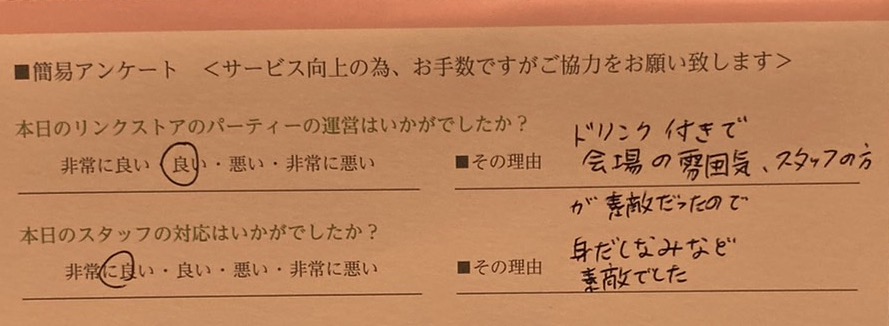 ■簡易アンケート ＜サービス向上の為、お手数ですがご協力をお願い致します＞
本日のリンクストアのパーティーの運営はいかがでしたか？
非常に良い・良い・悪い・非常に悪い
■その理由
ドリンク付きで
会場の雰囲気、スタッフの方
が素敵だったので
本日のスタッフの対応はいかがでしたか？
非常に良い・良い・悪い・非常に悪い
■その理由
身だしなみなど
素敵でした